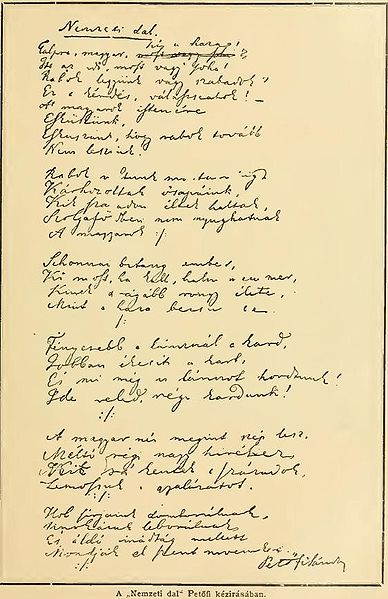 Nemzeti dal.
Talpra, magyar, hí a haza!
Itt az idő, most vagy soha!
Rabok legyünk vagy szabadok?
Ez a kérdés, válasszatok! –
A magyarok istenére
Esküszünk,
Esküszünk, hogy rabok tovább
Nem leszünk!
Rabok voltunk mostanáig
Kárhozottak ősapáink,
Kik szabadon éltek haltak,
Szolgaföldben nem nyughatnak
A magyarok :/:
Sehonnai bitang ember,
Ki most, ha kell, halni nem mer,
Kinek drágább rongy élete,
Mint a haza becsülete.
:/:
Fényesebb a láncnál a kard,
Jobban ékesíti a kart,
És mi mégis láncot hordunk!
Ide veled, régi kardunk!
:/:
A magyar név megint szép lesz,
Méltó régi nagy hiréhez,
Mit rá kentek a századok,
Lemossuk a gyalázatot.
:/:
Hol sírjaink domborulnak,
Unokáink leborulnak,
És áldó imádság mellett
Mondják el szent neveinket.
:/:
Petőfi Sándor
A „Nemzeti dal“ Petőfi kézirásában.